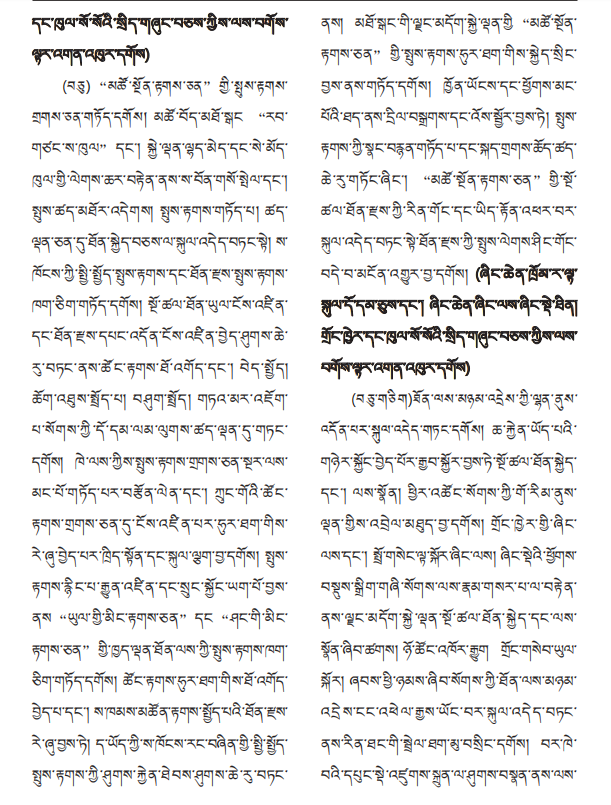 དང་ཁུལ་སོ་སོའི་སྲིད་གཞུང་བཅས་ཀྱིས་ལས་བགོས་
ལྟར་འགན་འཁུར་དགོས)
(བཅུ) “མཚོ་སྔོན་རྟགས་ཅན” གྱི་སྤུས་རྟགས་
གྲགས་ཅན་གཏོད་དགོས། མཚོ་བོད་མཐོ་སྒང “རབ་
གཙང་ས་ཁུལ” དང་། སྐྱེ་ལྡན་ལྷད་མེད་དང་སེ་མོད་
ཁུལ་གྱི་ལེགས་ཆར་བརྟེན་ནས་ས་བོན་གསོ་སྤེལ་དང་།
སྤུས་ཚད་མཐོར་འདེགས། སྤུས་རྟགས་གཏོད་པ། ཚད་
ལྡན་ཅན་དུ་ཐོན་སྐྱེད་བཅས་ལ་སྐུལ་འདེད་བཏང་སྟེ། ས་
ཁོངས་ཀྱི་སྤྱི་སྤྱོད་སྤུས་རྟགས་དང་ཐོན་རྫས་སྤུས་རྟགས་
ཁག་ཅིག་གཏོད་དགོས། སྔོ་ཚལ་ཐོན་ཡུལ་ངོས་འཛིན་
དང་ཐོན་རྫས་དཔང་འདོན་ངོས་འཛིན་བྱེད་ཤུགས་ཆེ་
རུ་བཏང་ནས་ཚོང་རྟགས་ཐོ་འགོད་དང་། བེད་སྤྱོད།
ཆོག་འཐུས་སྤྲོད་པ། བཤུག་སྤྲོད། གཏའ་མར་འཇོག་
པ་སོགས་ཀྱི་དོ་དམ་ལམ་ལུགས་ཚད་ལྡན་དུ་གཏང་
དགོས། ཁེ་ལས་ཀྱིས་སྤུས་རྟགས་གྲགས་ཅན་སྔར་ལས་
མང་པོ་གཏོད་པར་བརྩོན་ལེན་དང་། ཀྲུང་གོའི་ཚོང་
རྟགས་གྲགས་ཅན་དུ་ངོས་འཛིན་པར་ཧུར་ཐག་གིས་
རེ་ཞུ་བྱེད་པར་ཁྲིད་སྟོན་དང་སྐུལ་ལྕག་བྱ་དགོས། སྤུས་
རྟགས་རྙིང་པ་རྒྱུན་འཛིན་དང་སྲུང་སྐྱོང་ཡག་པོ་བྱས་
ནས “ཡུལ་གྱི་མིང་རྟགས་ཅན” དང “ཤང་གི་མིང་
རྟགས་ཅན” གྱི་ཁྱད་ལྡན་ཐོན་ལས་ཀྱི་སྤུས་རྟགས་ཁག་
ཅིག་གཏོད་དགོས། ཚོང་རྟགས་ཧུར་ཐག་གིས་ཐོ་འགོད་
བྱེད་པ་དང་། ས་ཁམས་མཚོན་རྟགས་སྤྱོད་པའི་ཐོན་རྫས་
རེ་ཞུ་བྱས་ཏེ། ད་ཡོད་ཀྱི་ས་ཁོངས་རང་བཞིན་གྱི་སྤྱི་སྤྱོད་
སྤུས་རྟགས་ཀྱི་ཤུགས་རྐྱེན་ཐེབས་ཤུགས་ཆེ་རུ་བཏང་
ནས། མཐོ་སྒང་གི་ལྗང་མདོག་སྐྱེ་ལྡན་གྱི “མཚོ་སྔོན་
རྟགས་ཅན” གྱི་སྤུས་རྟགས་ཧུར་ཐག་གིས་སྐྱེད་སྲིང་
བྱས་ནས་གཏོད་དགོས། ཁྱོན་ཡོངས་དང་ཕྱོགས་མང་
པོའི་ཐད་ནས་དྲིལ་བསྒྲགས་དང་འོས་སྦྱོར་བྱས་ཏེ། སྤུས་
རྟགས་ཀྱི་སྣང་བརྙན་གཏོད་པ་དང་སྐད་གྲགས་ཆོད་ཚད་
ཆེ་རུ་གཏོང་ཞིང་། “མཚོ་སྔོན་རྟགས་ཅན” གྱི་སྔོ་
ཚལ་ཐོན་རྫས་ཀྱི་རིན་གོང་དང་ཡིད་རྟོན་འཕར་བར་
སྐུལ་འདེད་བཏང་སྟེ་ཐོན་རྫས་ཀྱི་སྤུས་ལེགས་ཤིང་གོང་
བདེ་བ་མངོན་འགྱུར་བྱ་དགོས། (ཞིང་ཆེན་ཁྲོམ་ར་ལྟ་
སྐུལ་དོ་དམ་ཅུས་དང་། ཞིང་ཆེན་ཞིང་ལས་ཞིང་སྡེ་ཐིན།
གྲོང་ཁྱེར་དང་ཁུལ་སོ་སོའི་སྲིད་གཞུང་བཅས་ཀྱིས་ལས་
བགོས་ལྟར་འགན་འཁུར་དགོས)
(བཅུ་གཅིག)ཐོན་ལས་མཉམ་འདྲེས་ཀྱི་ལྷན་ནུས་
འདོན་པར་སྐུལ་འདེད་གཏང་དགོས། ཆ་རྐྱེན་ཡོད་པའི་
གཉེར་སྐྱོང་བྱེད་པོར་རྒྱབ་སྐྱོར་བྱས་ཏེ་སྔོ་ཚལ་ཐོན་སྐྱེད་
དང་། ལས་སྣོན། ཕྱིར་འཚོང་སོགས་ཀྱི་གོ་རིམ་ནུས་
ལྡན་གྱིས་འབྲེལ་མཐུད་བྱ་དགོས། གྲོང་ཁྱེར་གྱི་ཞིང་
ལས་དང་། སྤྲོ་གསེང་ལྟ་སྐོར་ཞིང་ལས། ཞིང་སྡེའི་ཕྱོགས་
བསྡུས་སྒྲིག་གཞི་སོགས་ལས་རྣམ་གསར་པ་ལ་བརྟེན་
ནས་ལྗང་མདོག་སྐྱེ་ལྡན་སྔོ་ཚལ་ཐོན་སྐྱེད་དང་ལས་
སྣོན་ཞིབ་ཚགས། ཉོ་ཚོང་འཁོར་རྒྱུག གྲོང་གསེབ་ཡུལ་
སྐོར། ཞབས་ཕྱི་ཉམས་ཞིབ་སོགས་ཀྱི་ཐོན་ལས་མཉམ་
འདྲེས་དང་འཕེལ་རྒྱས་ཡོང་བར་སྐུལ་འདེད་བཏང་
ནས་རིན་ཐང་གི་སྦྲེལ་ཐག་མུ་བསྲིང་དགོས། བར་ཁེ་
བའི་དཔུང་སྡེ་འཛུགས་སྐྲུན་ལ་ཤུགས་བསྣན་ནས་ལས་